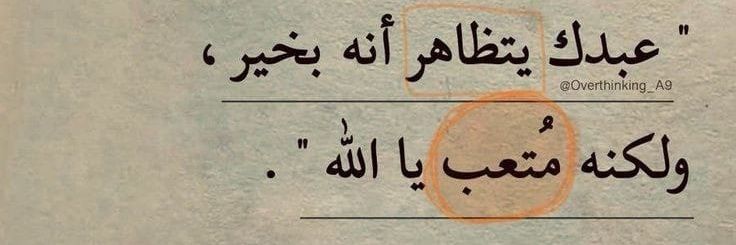 " عبدك يتظاهر أنه بخير ،
@Overthinking_A9
ولكنه مُتعب يا الله " .